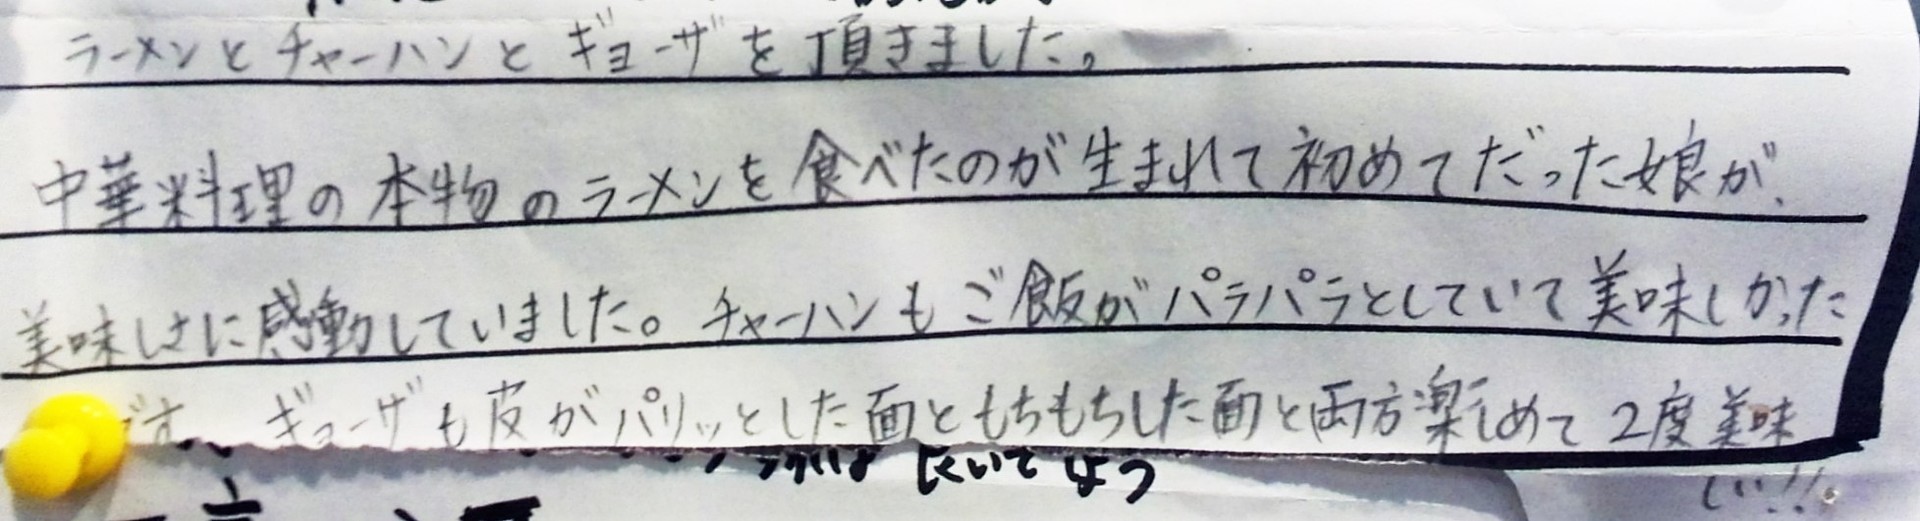 ラーメンとチャーハンとギョーザを頂きました。
中華料理の本物のラーメンを食べたのが生まれて初めてだった娘が、
美味しさに感動していました。チャーハンもご飯がパラパラとしていて美味しかった
です。ギョーザも皮がパリッとした面ともちもちした面と両方楽しめて2度美味
しい!!